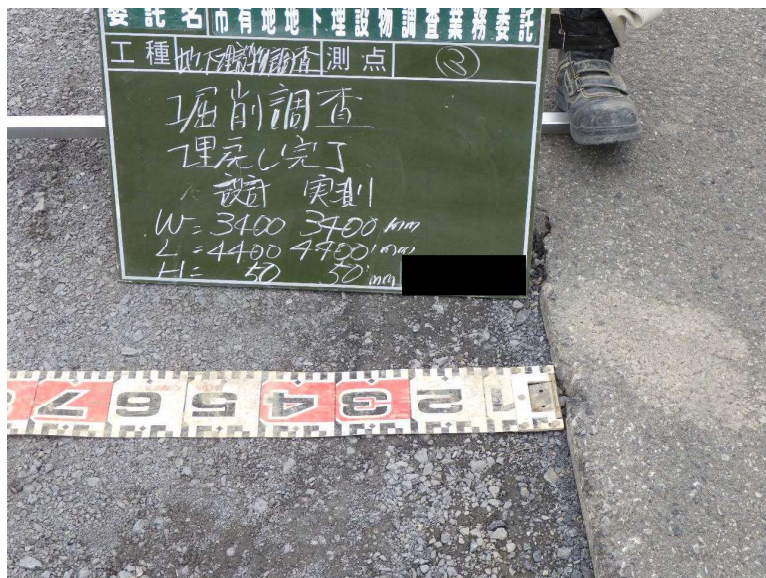 委託名 市有地地下埋設物調査業務委託
工種 地下埋設物調査 測点 ③
掘削調査
埋戻し完了
設計 実測
W=3400 3400mm
L=4400 4400mm
H=50 50mm
7 6 5 4 3 2 1